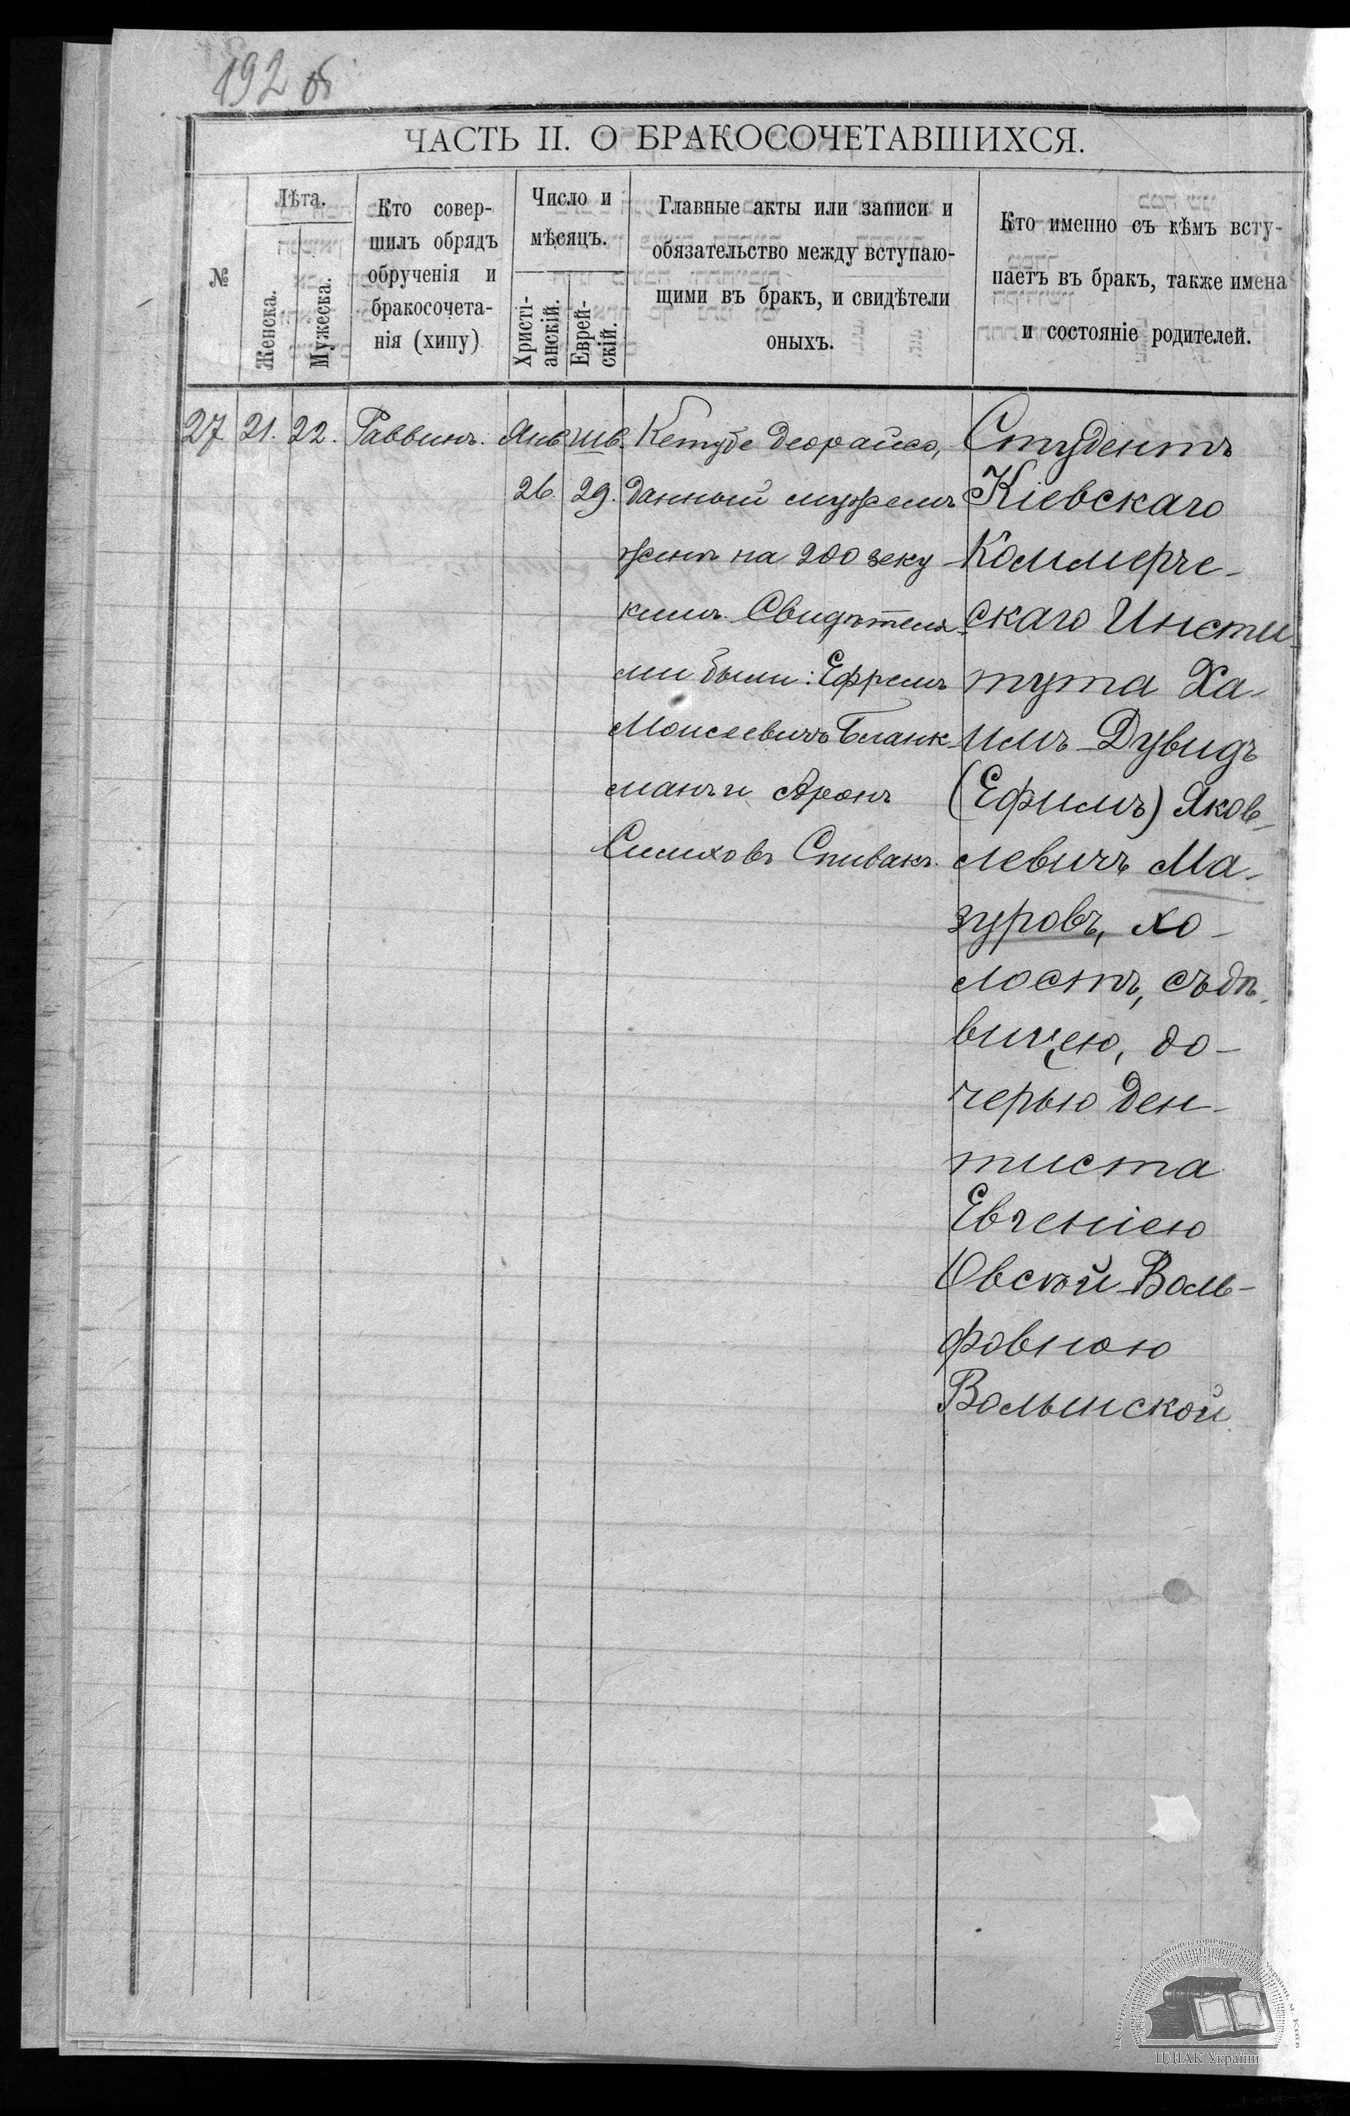 192 об
ЧАСТЬ II. О БРАКОСОЧЕТАВШИХСЯ.
№
Лѣта.
Женска.
Мужеска.
Кто совер-
шилъ обрядъ
обрученія и
бракосочета-
нія (хипу)
Число и
мѣсяцъ.
Христі-
анскій.
Еврей-
скій.
Главные акты или записи и
обязательство между вступаю-
щими въ бракъ, и свидѣтели
оныхъ.
Кто именно съ кѣмъ всту-
паетъ въ бракъ, также имена
и состояніе родителей.
27
21.
22.
Раввинъ.
Янв
26.
Шв.
29.
Кетубе деорайсо,
данный мужемъ
женѣ на 200 зеку
кимъ. Свидѣтеля-
ми были: Ефремъ
Моисеевичъ Бланк-
манъ и Аронъ
Спивакъ.
Студентъ
Кіевскаго
Коммерче-
скаго Инсти-
тута Ха-
имъ-Дувидъ
(Ефимъ) Яков-
левичъ Ма-
зуровъ, хо-
лостъ, съ дѣ-
вицею, до-
черью ден-
тиста
Евгеніею
Овсѣй-Воль-
фовною
Волынской
ЦДІАК України